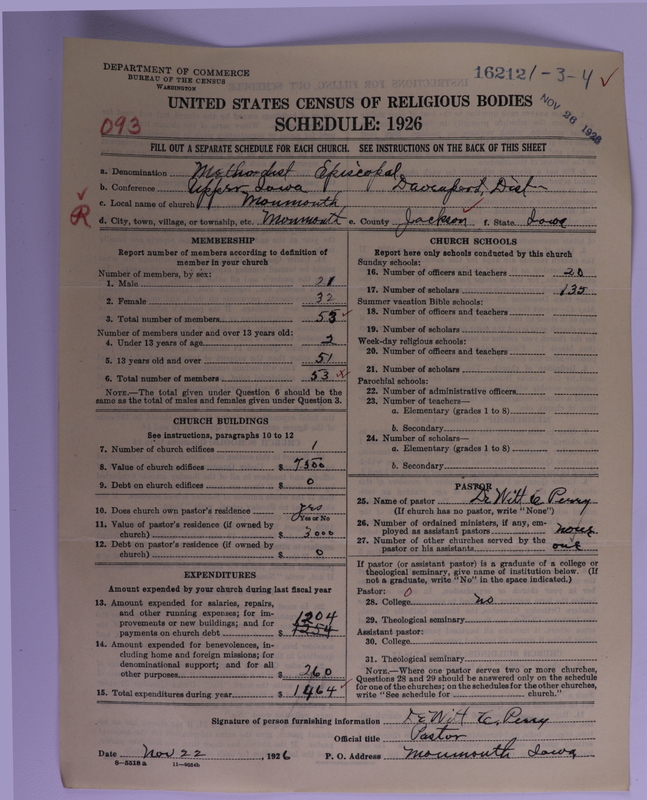 DEPARTMENT OF COMMERCE
BUREAU OF THE CENSUS
WASHINGTON
16212/-3-4 ✓
UNITED STATES CENSUS OF RELIGIOUS BODIES
NOV 26 1926
SCHEDULE: 1926
093
FILL OUT A SEPARATE SCHEDULE FOR EACH CHURCH. SEE INSTRUCTIONS ON THE BACK OF THIS SHEET
a. Denomination Methodist Episcopal
b. Conference Upper Iowa Davenport, Dist
c. Local name of church Monmouth
R
d. City, town, village, or township, etc. Monmouth e. County Jackson f. State Iowa
MEMBERSHIP
Report number of members according to definition of
member in your church
Number of members, by sex:
1. Male 21
2. Female 32
3. Total number of members 53
Number of members under and over 13 years old:
4. Under 13 years of age 2
5. 13 years old and over 51
6. Total number of members 53
NOTE.—The total given under Question 6 should be the
same as the total of males and females given under Question 3.
CHURCH BUILDINGS
See instructions, paragraphs 10 to 12
7. Number of church edifices 1
8. Value of church edifices $ 7500
9. Debt on church edifices $ 0
10. Does church own pastor's residence yes
Yes or No
11. Value of pastor's residence (if owned by
church) $ 3000
12. Debt on pastor's residence (if owned by
church) $ 0
EXPENDITURES
Amount expended by your church during last fiscal year
13. Amount expended for salaries, repairs,
and other running expenses; for im-
provements or new buildings; and for 1204
payments on church debt $ 1254
14. Amount expended for benevolences, in-
cluding home and foreign missions; for
denominational support; and for all
other purposes $ 260
15. Total expenditures during year $ 1464
CHURCH SCHOOLS
Report here only schools conducted by this church
Sunday schools:
16. Number of officers and teachers 20
17. Number of scholars 135
Summer vacation Bible schools:
18. Number of officers and teachers
19. Number of scholars
Week-day religious schools:
20. Number of officers and teachers
21. Number of scholars
Parochial schools:
22. Number of administrative officers
23. Number of teachers—
a. Elementary (grades 1 to 8)
b. Secondary
24. Number of scholars—
a. Elementary (grades 1 to 8)
b. Secondary
PASTOR
25. Name of pastor DeWitt C Perry
(If church has no pastor, write "None")
26. Number of ordained ministers, if any, em-
ployed as assistant pastors none
27. Number of other churches served by the
pastor or his assistants one
If pastor (or assistant pastor) is a graduate of a college or
theological seminary, give name of institution below. (If
not a graduate, write "No" in the space indicated.)
Pastor: 0
28. College no
29. Theological seminary
Assistant pastor:
30. College
31. Theological seminary
NOTE.—Where one pastor serves two or more churches,
Questions 28 and 29 should be answered only on the schedule
for one of the churches; on the schedules for the other churches,
write "See schedule for church."
Signature of person furnishing information DeWitt C. Perry
Official title Pastor
Date Nov 22, 1926 P. O. Address Monmouth Iowa
8—5518 a 11—9554b